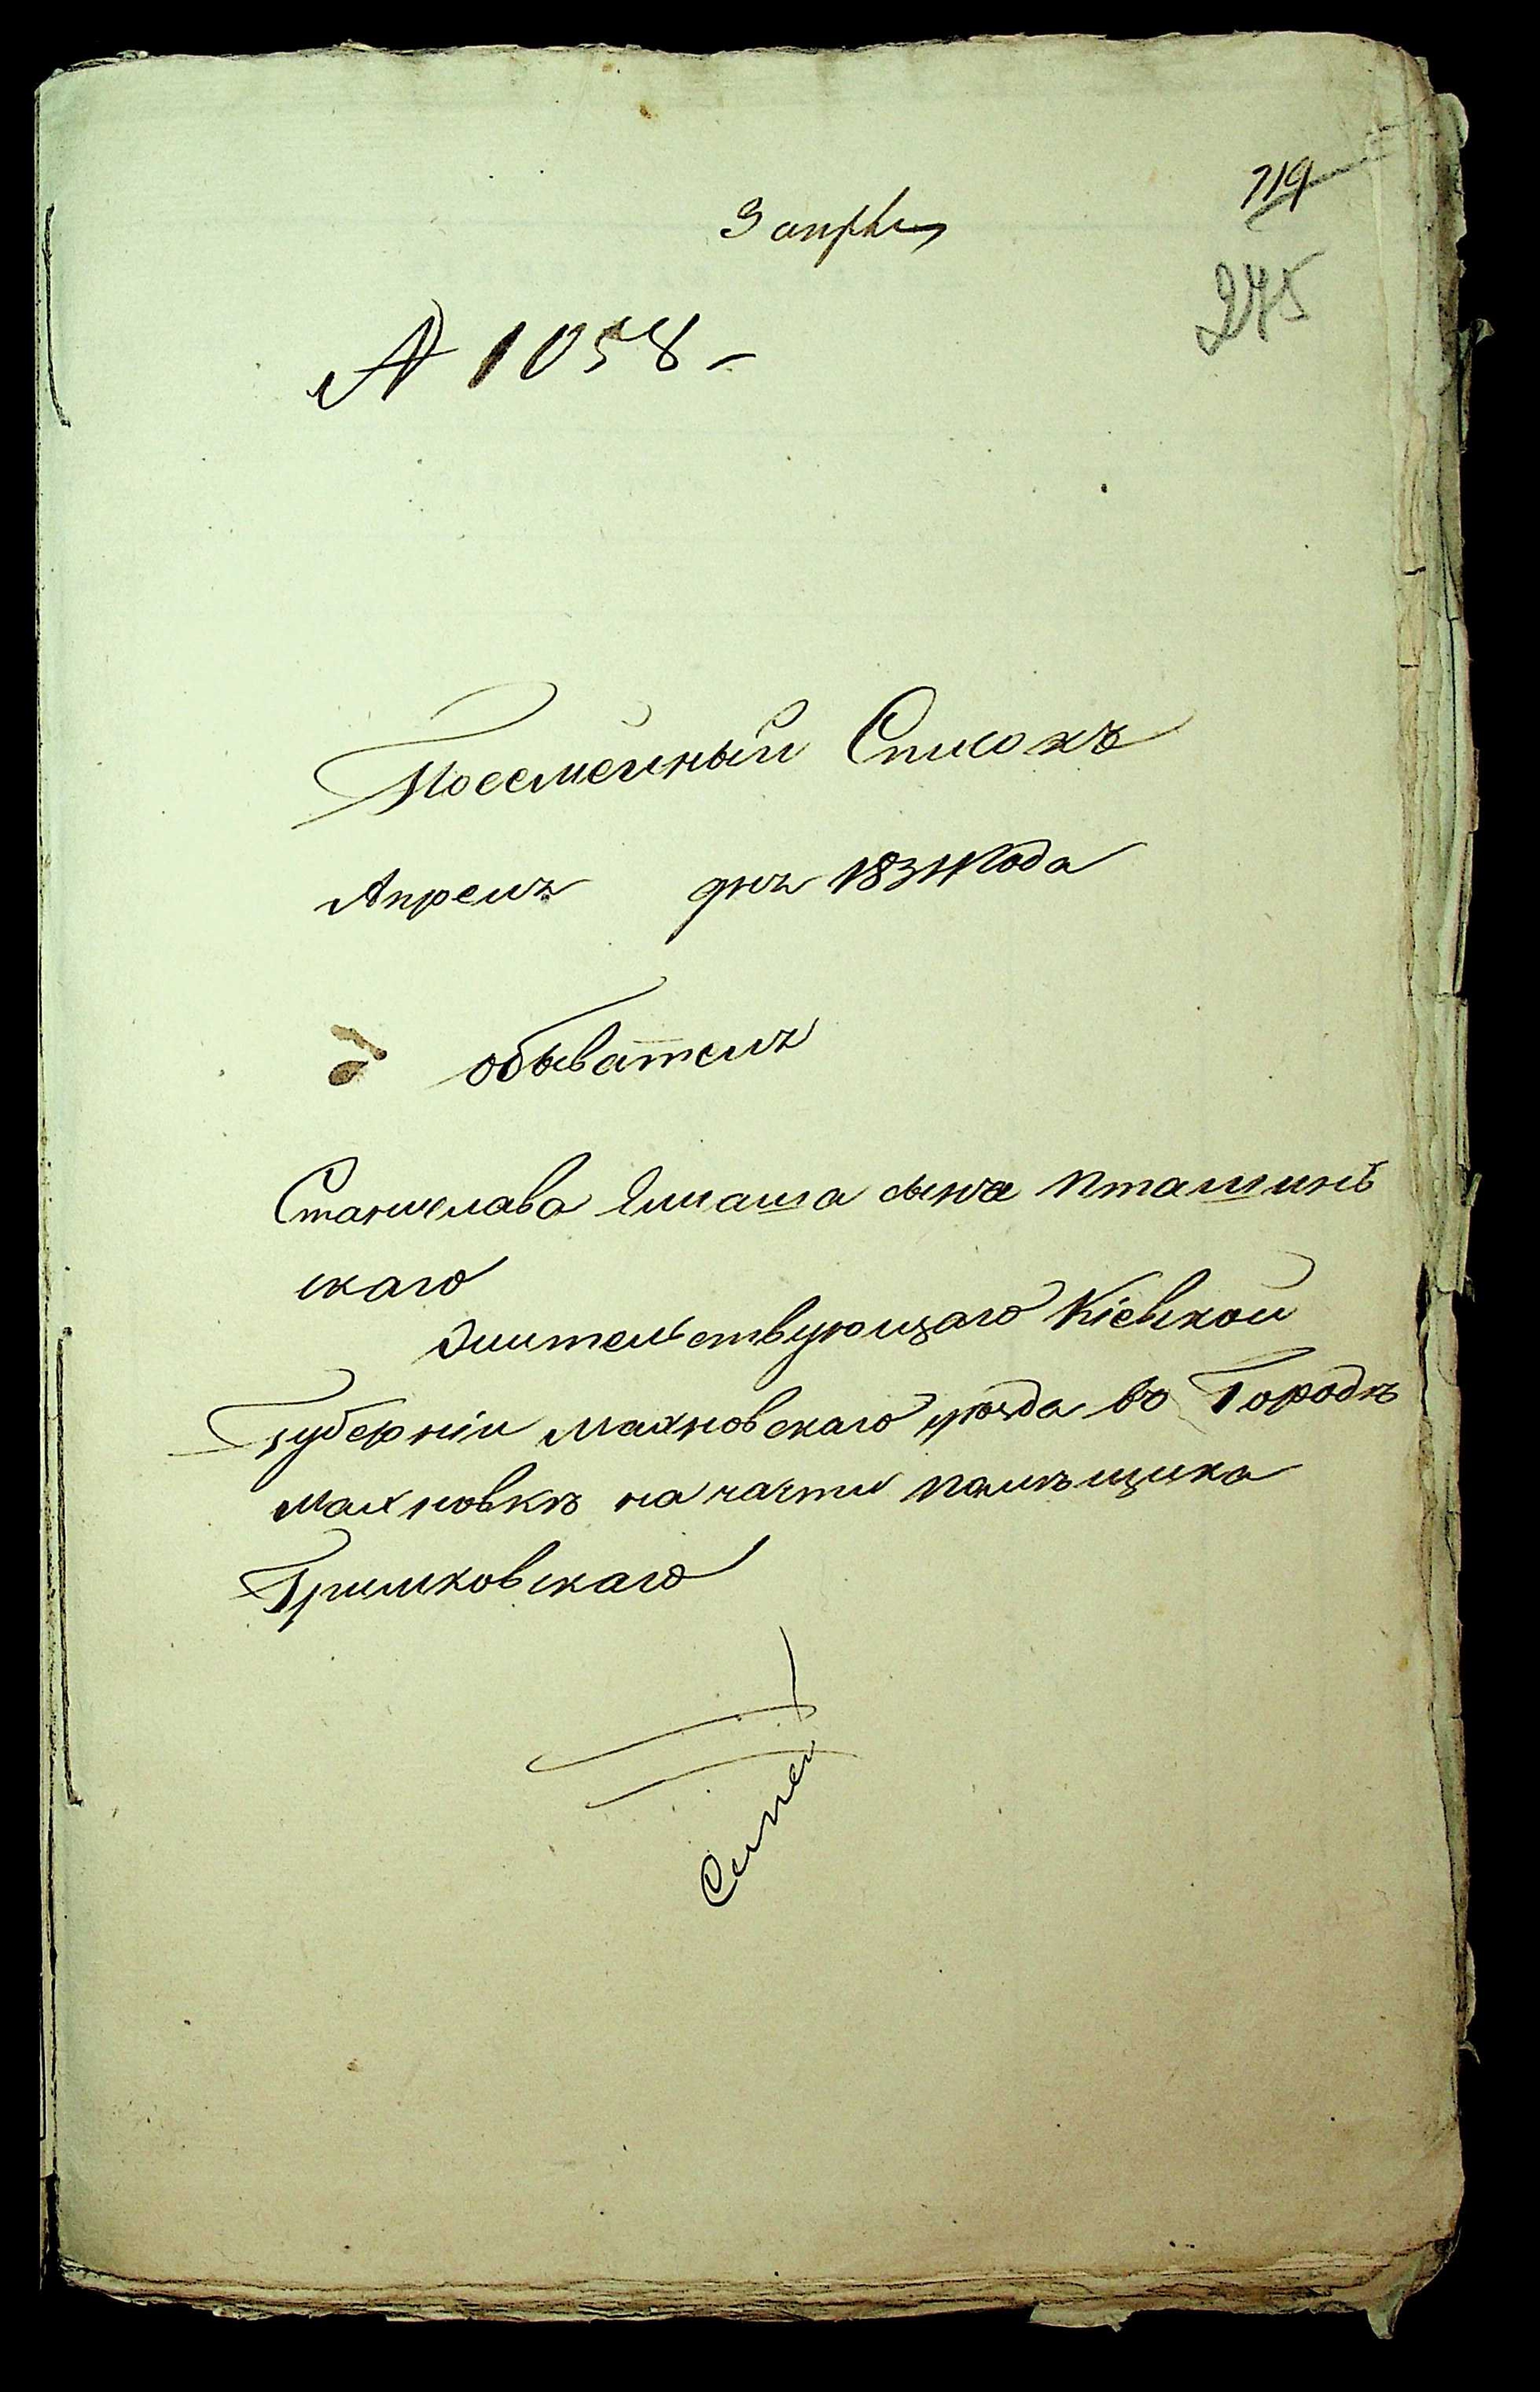 719
3 апрѣля
275
№ 1058
Посемейный Списокъ
Апреля дня 1834 Года
о обывателя
Станислава Илиаша сына Пташинь
скаго
Жительствующаго Кіевской
Губерніи Махновскаго уѣзда во Городѣ
Махновкѣ на части памѣщика